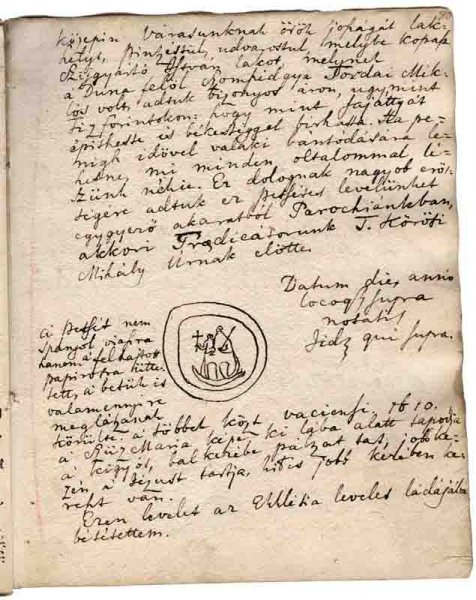 közepin Várasunknak örök jószágát lak
helyt, pinzéstül, udvarostul, melybe kopasz
Szijgyártó István lakot, melynek
a Duna felől szomszidgya Tordai Mik-
lós volt, adtuk bizonyos áron, ugy mint
tiz forintokon: hogy mint sajáttyát
épithesse és békességgel birhassa. Ha pe-
nigh idővel valaki bántodására le-
hetne, mi minden oltalommal lé-
szünk nékie. Ez dolognak nagyob erős-
ségere adtuk ez petsétes levelünket
egygyező akaratból Parochiánkban,
akkori Prædicátorunk T. Körösi
Mihály Urnak előtte.
Datum die, anno
locoqz supra
notatis
Iidz qui supra.
a petsét nem
spanyol viaszra
hanem a felhajtott
papirosra ütte-
tett, a betük is
valamennyire
meglátzanak
körülte a többet közt vaciensi 1610.
a Szüz Mária képe, ki lába alatt tapodja
a kigyót, bal kezébe pálzát tart, jobb ke-
zén a Jézust tartja, kitis jobb kezében ke-
reszt van.
Ezen levelet az Ekklésia leveles ládájába
bététettem.